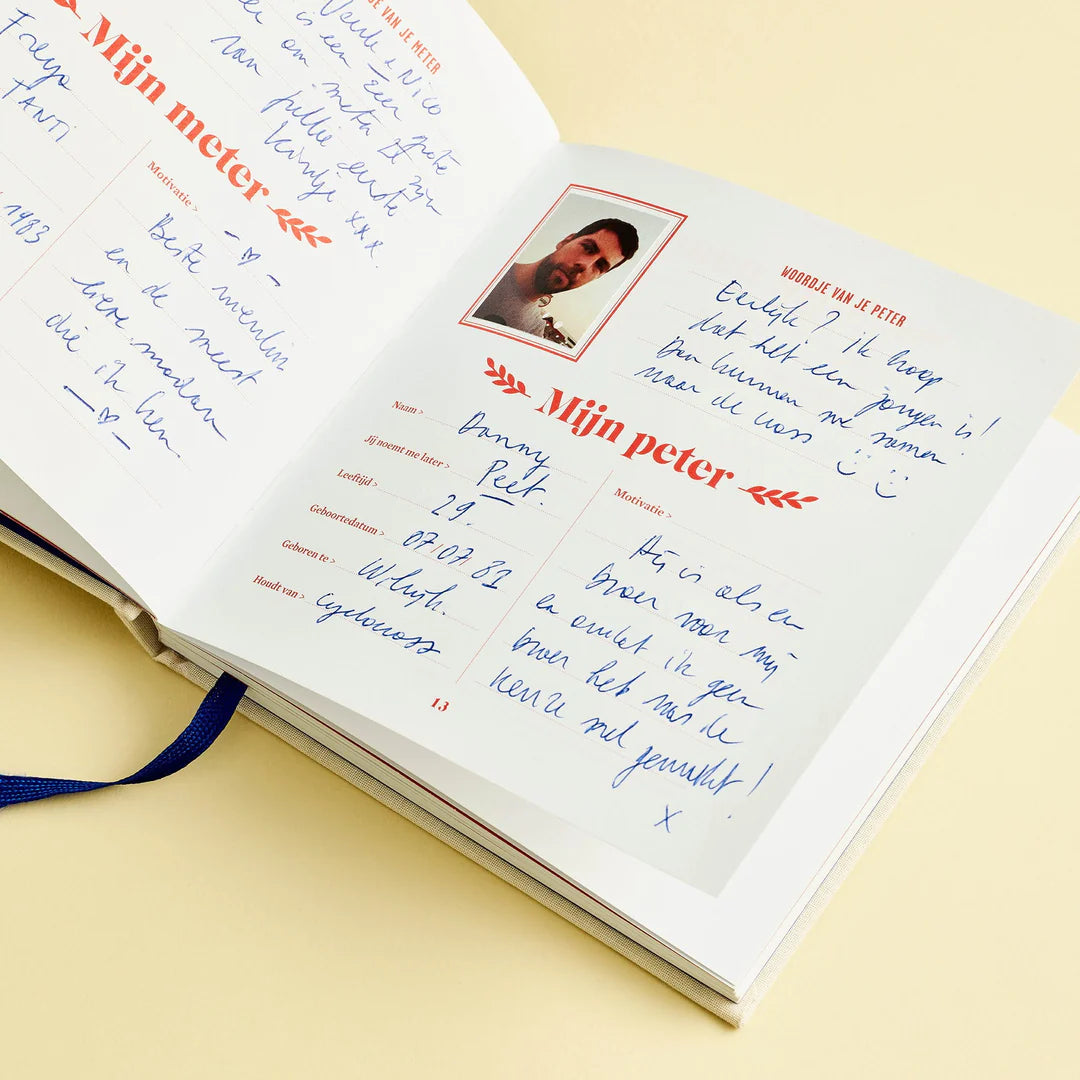 JE VAN JE METER
Nico
is een Eer
om meter te
van jullie eerste
kindje xxx.
Mijn meter
Freya
TANTI
1983
Motivatie >
- ♡ -
Beste vriendin
en de meest
lieve madam
die ik ken
- ♡ -
WOORDJE VAN JE PETER
Eerlijk? ik hoop
dat het een jongen is!
Dan kunnen we samen
naar de cross
Mijn peter
Naam > Danny
Jij noemt me later > Peet.
Leeftijd > 29.
Geboortedatum > 07/07/82
Geboren te > Wilrijk.
Houdt van > Cyclocross
Motivatie >
Hij is als een
broer voor mij
en omdat ik geen
broer heb was de
keuze snel gemaakt!
x
13